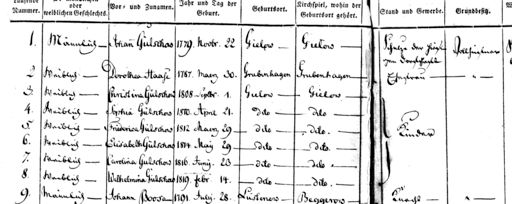 Nummer. | weiblichen Geschlechts. | Vor- und Zunamen. | Jahr und Tag der Geburt. | Geburtsort. | Kirchspiel, wohin der Geburtsort gehört. | Stand und Gewerbe. | Grundbesitz.
1. Männlich — Johan Gülschow 1779. Novbr. 22 Gielow — Gielow —
2 Weiblich — Dorothea Haase 1787. März 30. Grubenhagen Grubenhagen — Ehefrau —
3 Weiblich — Christina Gülschow 1808 Septbr 1. Gielow — Gielow —
4. Weiblich — Sophia Gülschow 1810. April 21. — dito — — dito. —
5 Weiblich — Friderica Gülschow 1812 März 29 — dito — — dito. — Kinder
6. Weiblich — Elisabeth Gülschow 1814 29 — dito — — dito —
7. Weiblich — Carolina Gülschow 1816. 23 — dito — — dito —
8 Weiblich — Wilhelmina Gülschow 1819 febr 14. — dito — — dito. —
9. Männlich — Johann 1791 July 28. — Beggerow — Knecht —